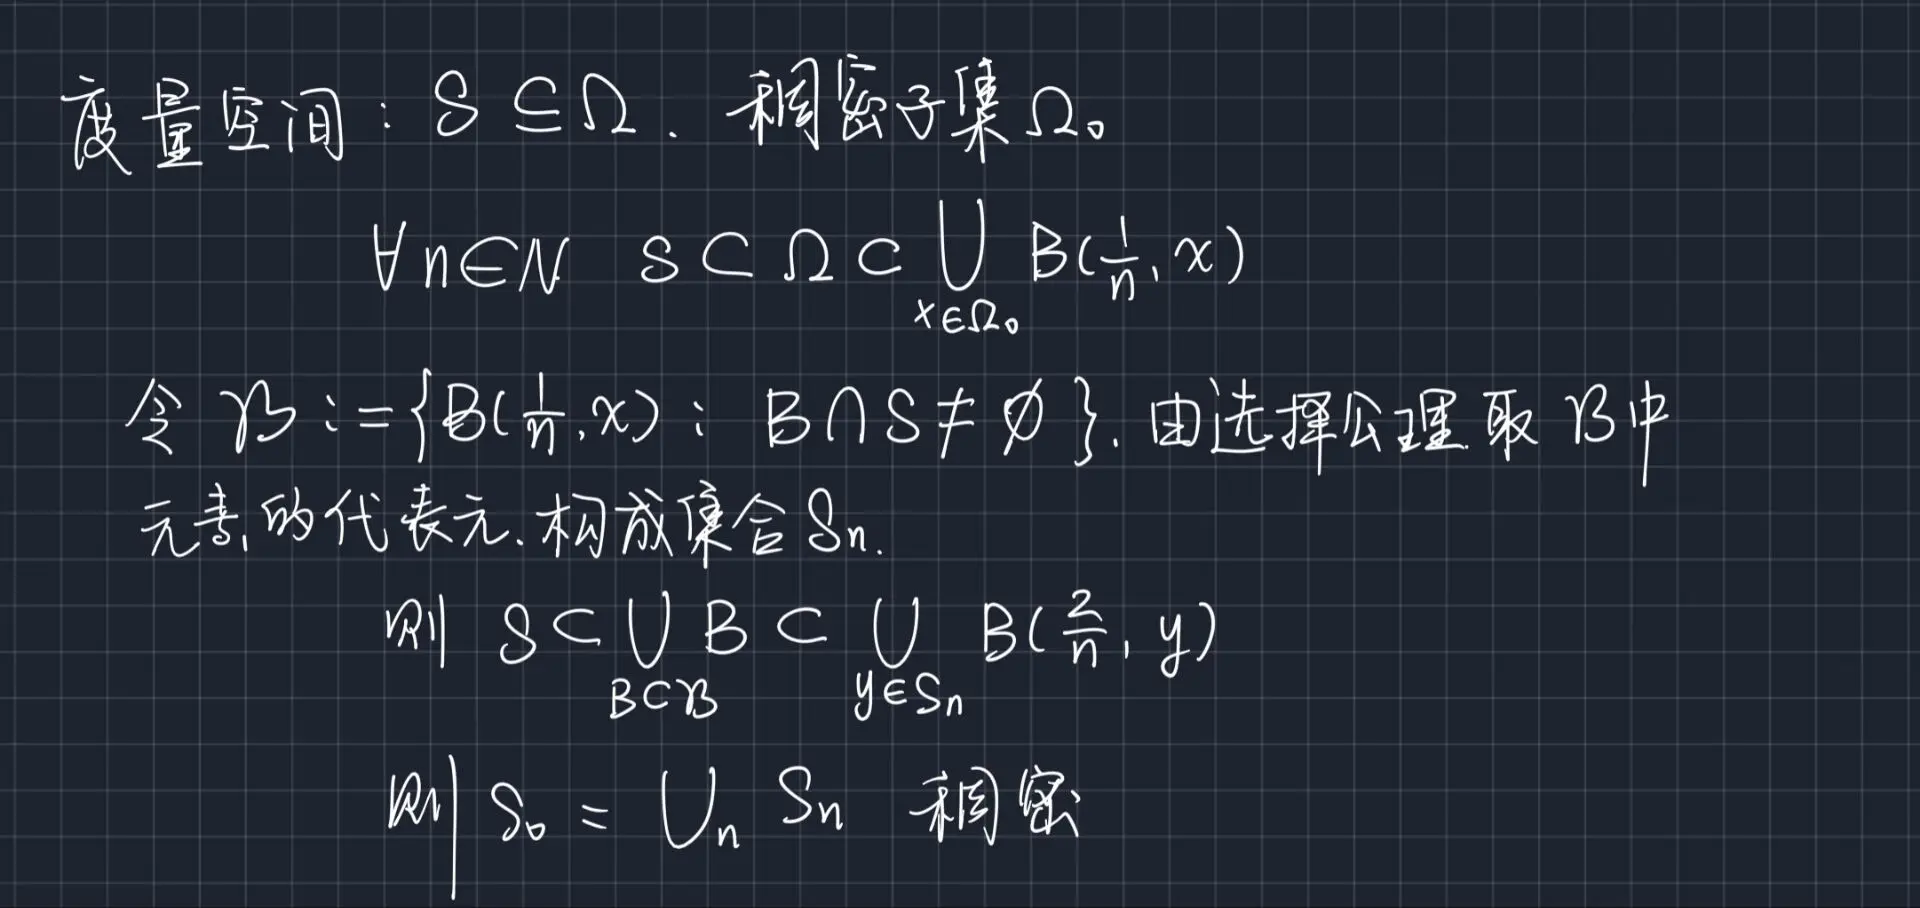 度量空间: S ⊆ Ω. 稠密子集 Ω₀
∀n∈N S ⊂ Ω ⊂ ⋃_{x∈Ω₀} B(1/n, x)
令 𝓑 := {B(1/n, x) : B∩S ≠ ∅}. 由选择公理 取 𝓑 中
元素的代表元. 构成集合 Sₙ.
则 S ⊂ ⋃_{B⊂𝓑} B ⊂ ⋃_{y∈Sₙ} B(2/n, y)
则 S₀ = ⋃ₙ Sₙ 稠密